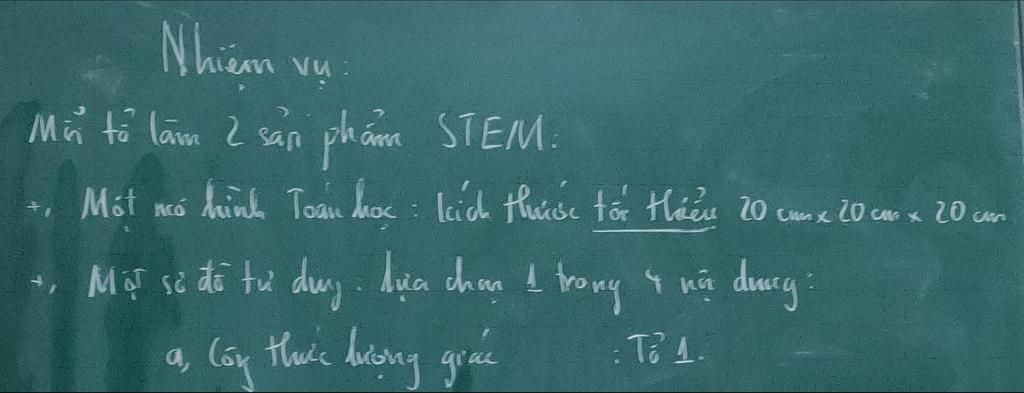 Nhiệm vụ:
Mỗi tổ làm 2 sản phẩm STEM:
+, Một mô hình Toán học : kích thước tối thiểu 20 cm x 20 cm x 20 cm
+, Một sơ đồ tư duy : lựa chọn 1 trong 4 nội dung:
a, Công thức lượng giác : Tổ 1.